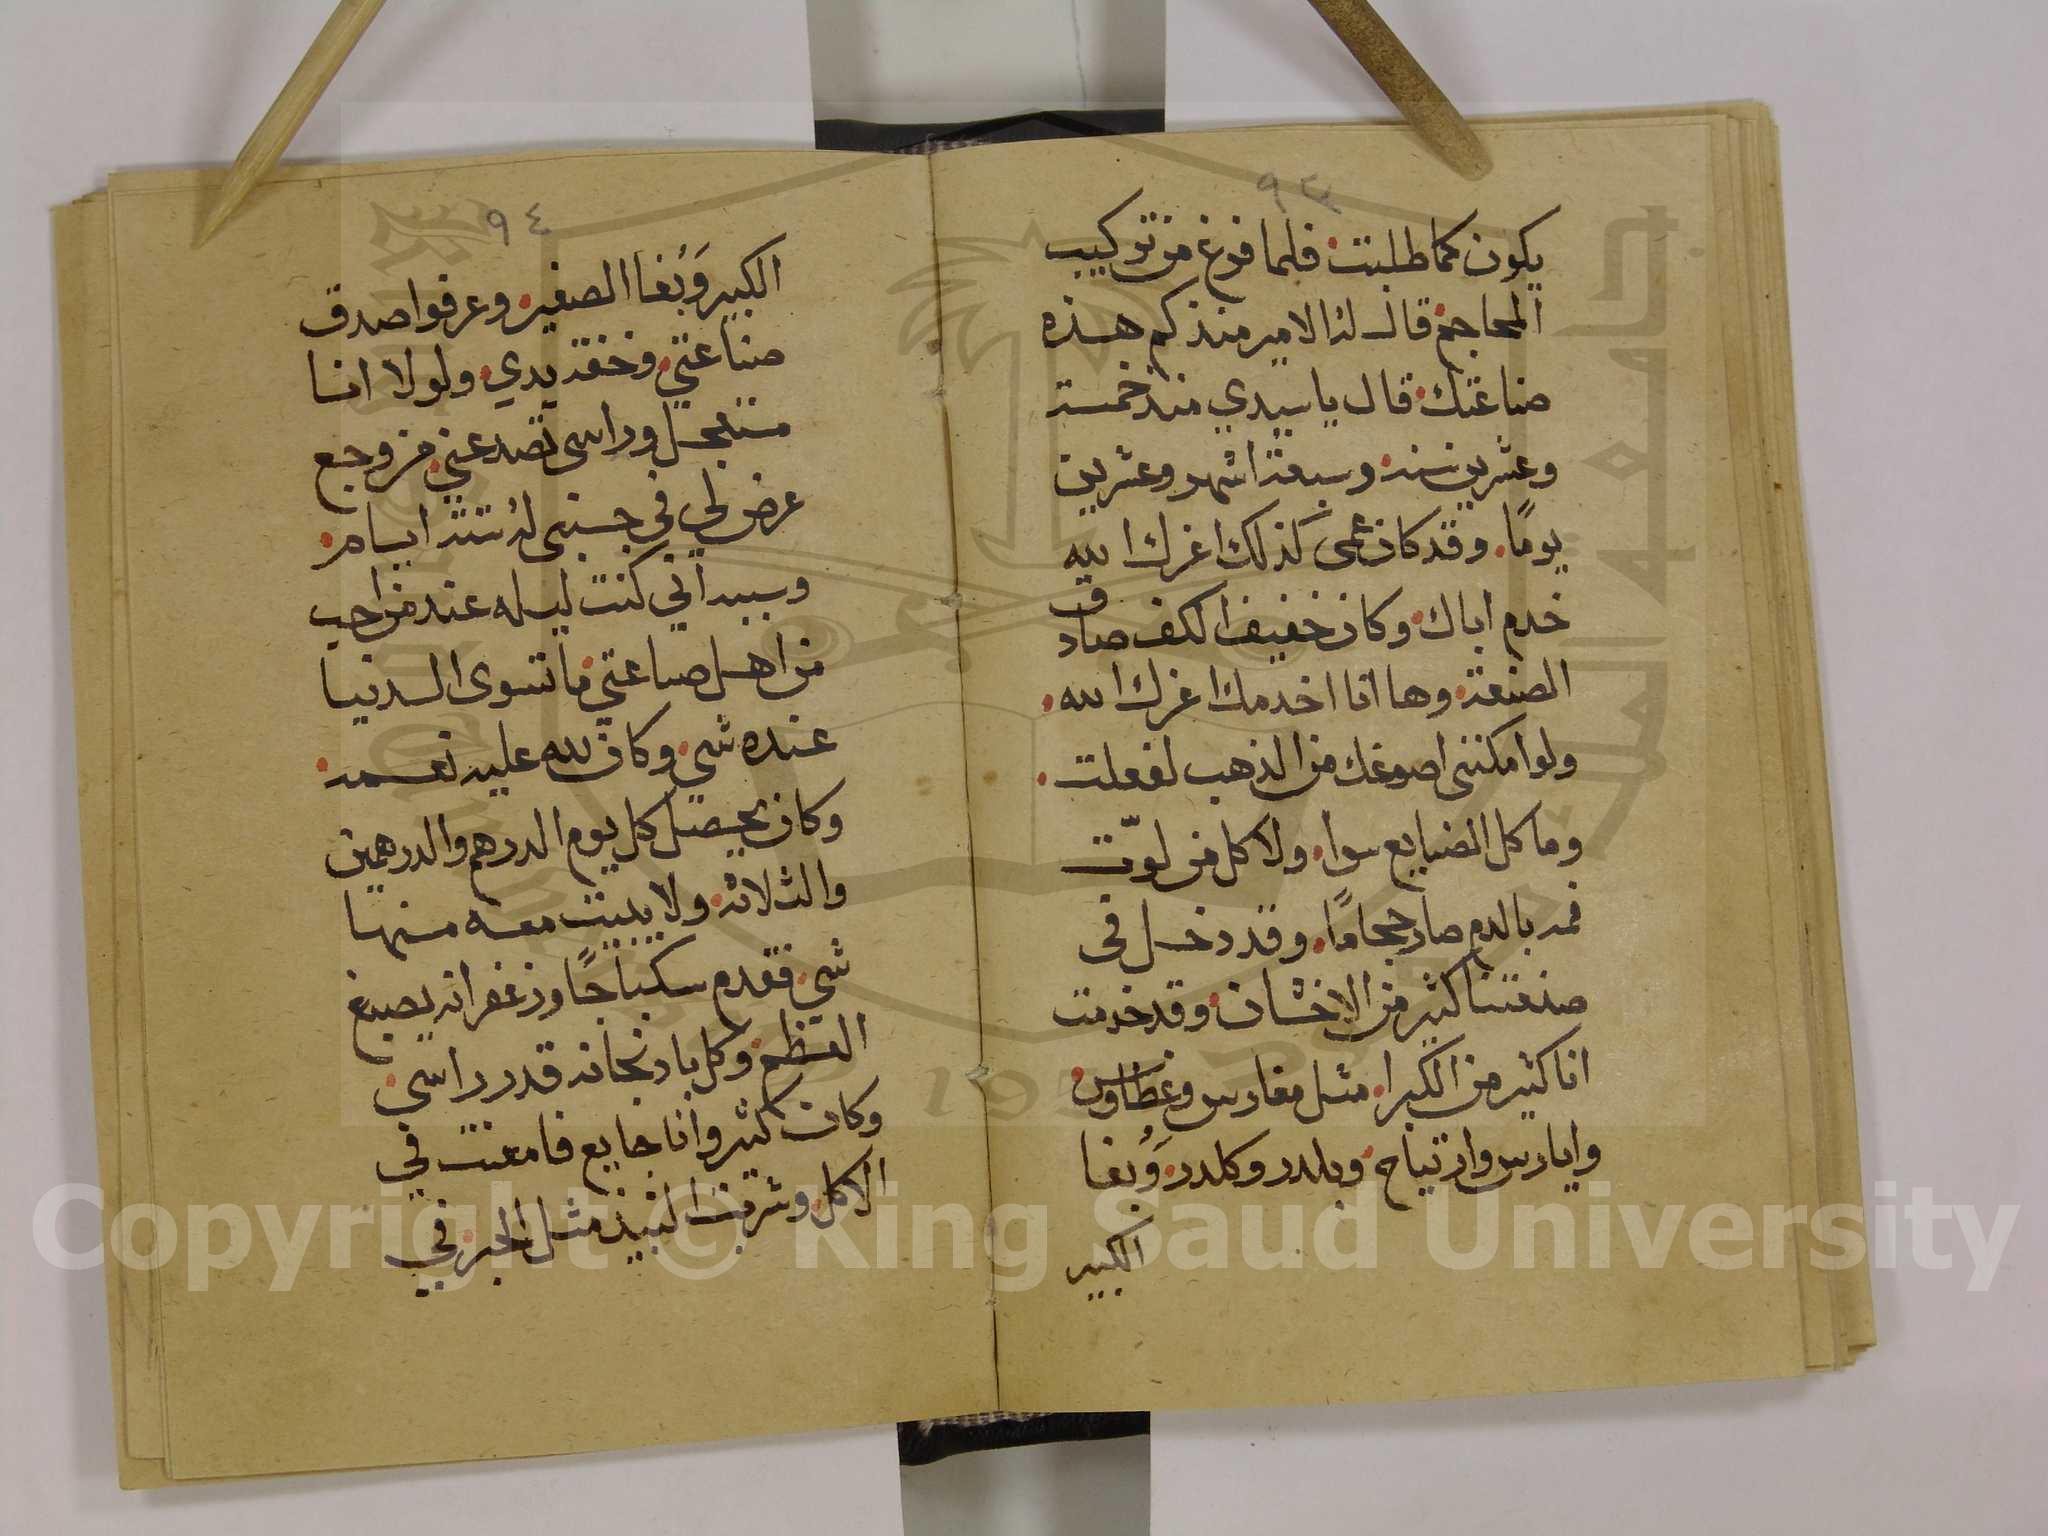 ٩٣
يكون كما طلبت فلما فرغ من تركيب
المحاجم قال له الامير منذ كم هذه
صناعتك قال يا سيدي منذ خمسة
وعشرين سنة وسبعة اشهر وعشرين
يومًا وقد كان عمى كذلك اعزك الله
خدم اباك وكان خفيف الكف صادق
الصنعة وها انا اخدمك اعزك الله
ولو امكننى اصوغك من الذهب لفعلت
وما كل الصنايع سوا ولا كل من لوّث
فمه بالدم صار حجامًا وقد دخل فى
صنعتنا كثير من الاخشان وقد خدمت
انا كثير من الكبرا مثل مغارس وغطاوس
وايارس وارتياح وبلدر وكلدر وَبُغا
الكبير
٩٤
الكبير وَبُغا الصغير وعرفوا صدق
صناعتي وخفة يدي ولولا انا
مستعجل وراسى تصدعني من وجع
عرض لي في جنبى له ستة ايام
وسببه اني كنت ليله عند من احب
من اهل صناعتي ما تسوى الدنيا
عنده شي وكان لله عليه نعمه
وكان يحصل كل يوم الدرهم والدرهمين
والثلاثة ولا يبيت معه منها
شي فقدم سكباجًا وزعفرانه يصبغ
العظم وكل بادنجانه قدر راسي
وكان كثير وانا جايع فامعنت في
الاكل وشربت النبيذ مثل الحبر في
Copyright © King Saud University